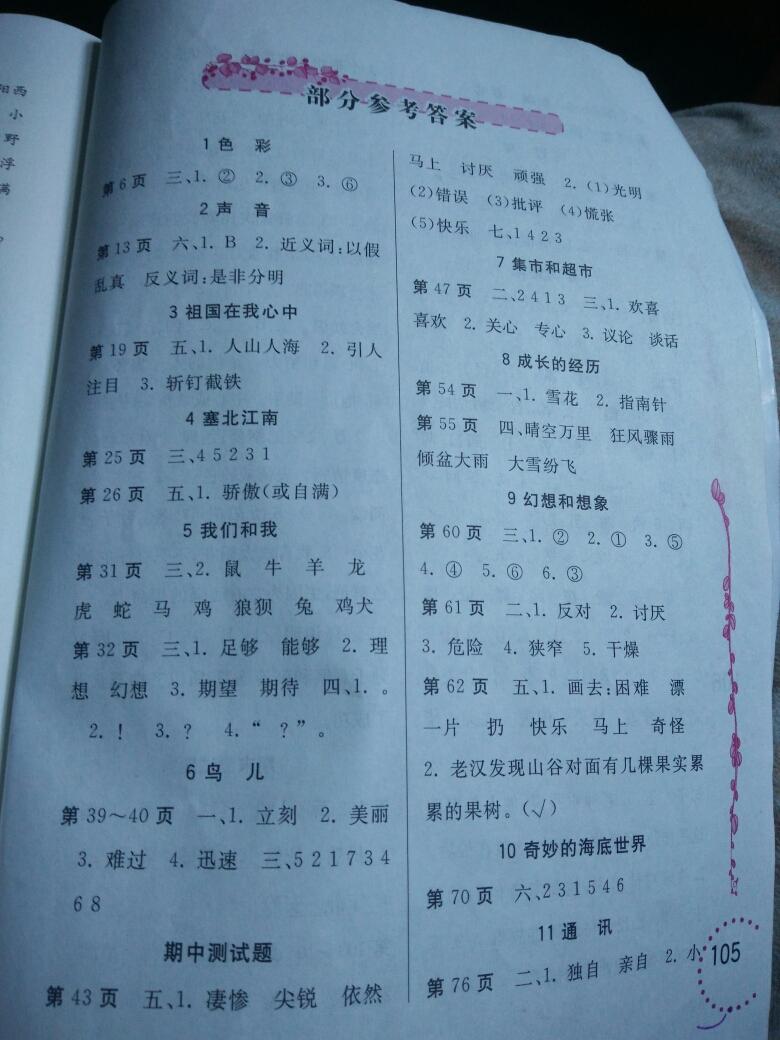 阳西
小
野
浮
满
部分参考答案
1 色 彩
第 6 页 三、1. ② 2. ③ 3. ⑥
2 声 音
第 13 页 六、1. B 2. 近义词:以假
乱真 反义词:是非分明
3 祖国在我心中
第 19 页 五、1. 人山人海 2. 引人
注目 3. 斩钉截铁
4 塞北江南
第 25 页 三、4 5 2 3 1
第 26 页 五、1. 骄傲(或自满)
5 我们和我
第 31 页 三、2. 鼠 牛 羊 龙
虎 蛇 马 鸡 狼狈 兔 鸡犬
第 32 页 三、1. 足够 能够 2. 理
想 幻想 3. 期望 期待 四、1. 。
2. ! 3. ? 4. “ ？”。
6 鸟 儿
第 39～40 页 一、1. 立刻 2. 美丽
3. 难过 4. 迅速 三、5 2 1 7 3 4
6 8
期中测试题
第 43 页 五、1. 凄惨 尖锐 依然
马上 讨厌 顽强 2. (1)光明
(2)错误 (3)批评 (4)慌张
(5)快乐 七、1 4 2 3
7 集市和超市
第 47 页 二、2 4 1 3 三、1. 欢喜
喜欢 2. 关心 专心 3. 议论 谈话
8 成长的经历
第 54 页 一、1. 雪花 2. 指南针
第 55 页 四、晴空万里 狂风骤雨
倾盆大雨 大雪纷飞
9 幻想和想象
第 60 页 三、1. ② 2. ① 3. ⑤
4. ④ 5. ⑥ 6. ③
第 61 页 二、1. 反对 2. 讨厌
3. 危险 4. 狭窄 5. 干燥
第 62 页 五、1. 画去:困难 漂
一片 扔 快乐 马上 奇怪
2. 老汉发现山谷对面有几棵果实累
累的果树。(√)
10 奇妙的海底世界
第 70 页 六、2 3 1 5 4 6
11 通 讯
第 76 页 二、1. 独自 亲自 2. 小
105